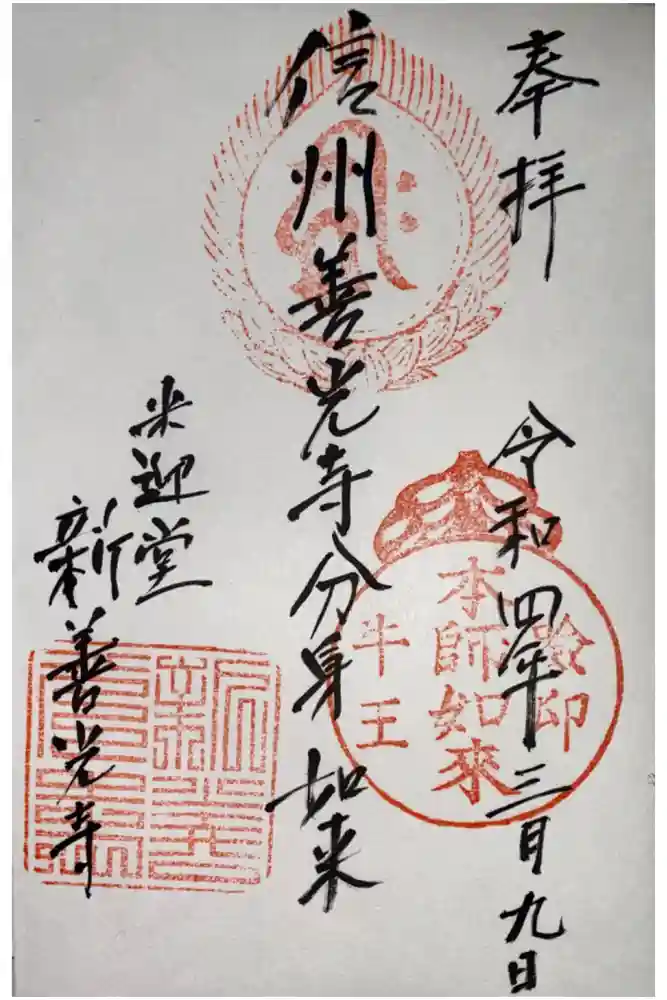 奉拝
令和四年三月九日
本師如來
牛王
信州善光寺分身如来
来迎堂
新善光寺